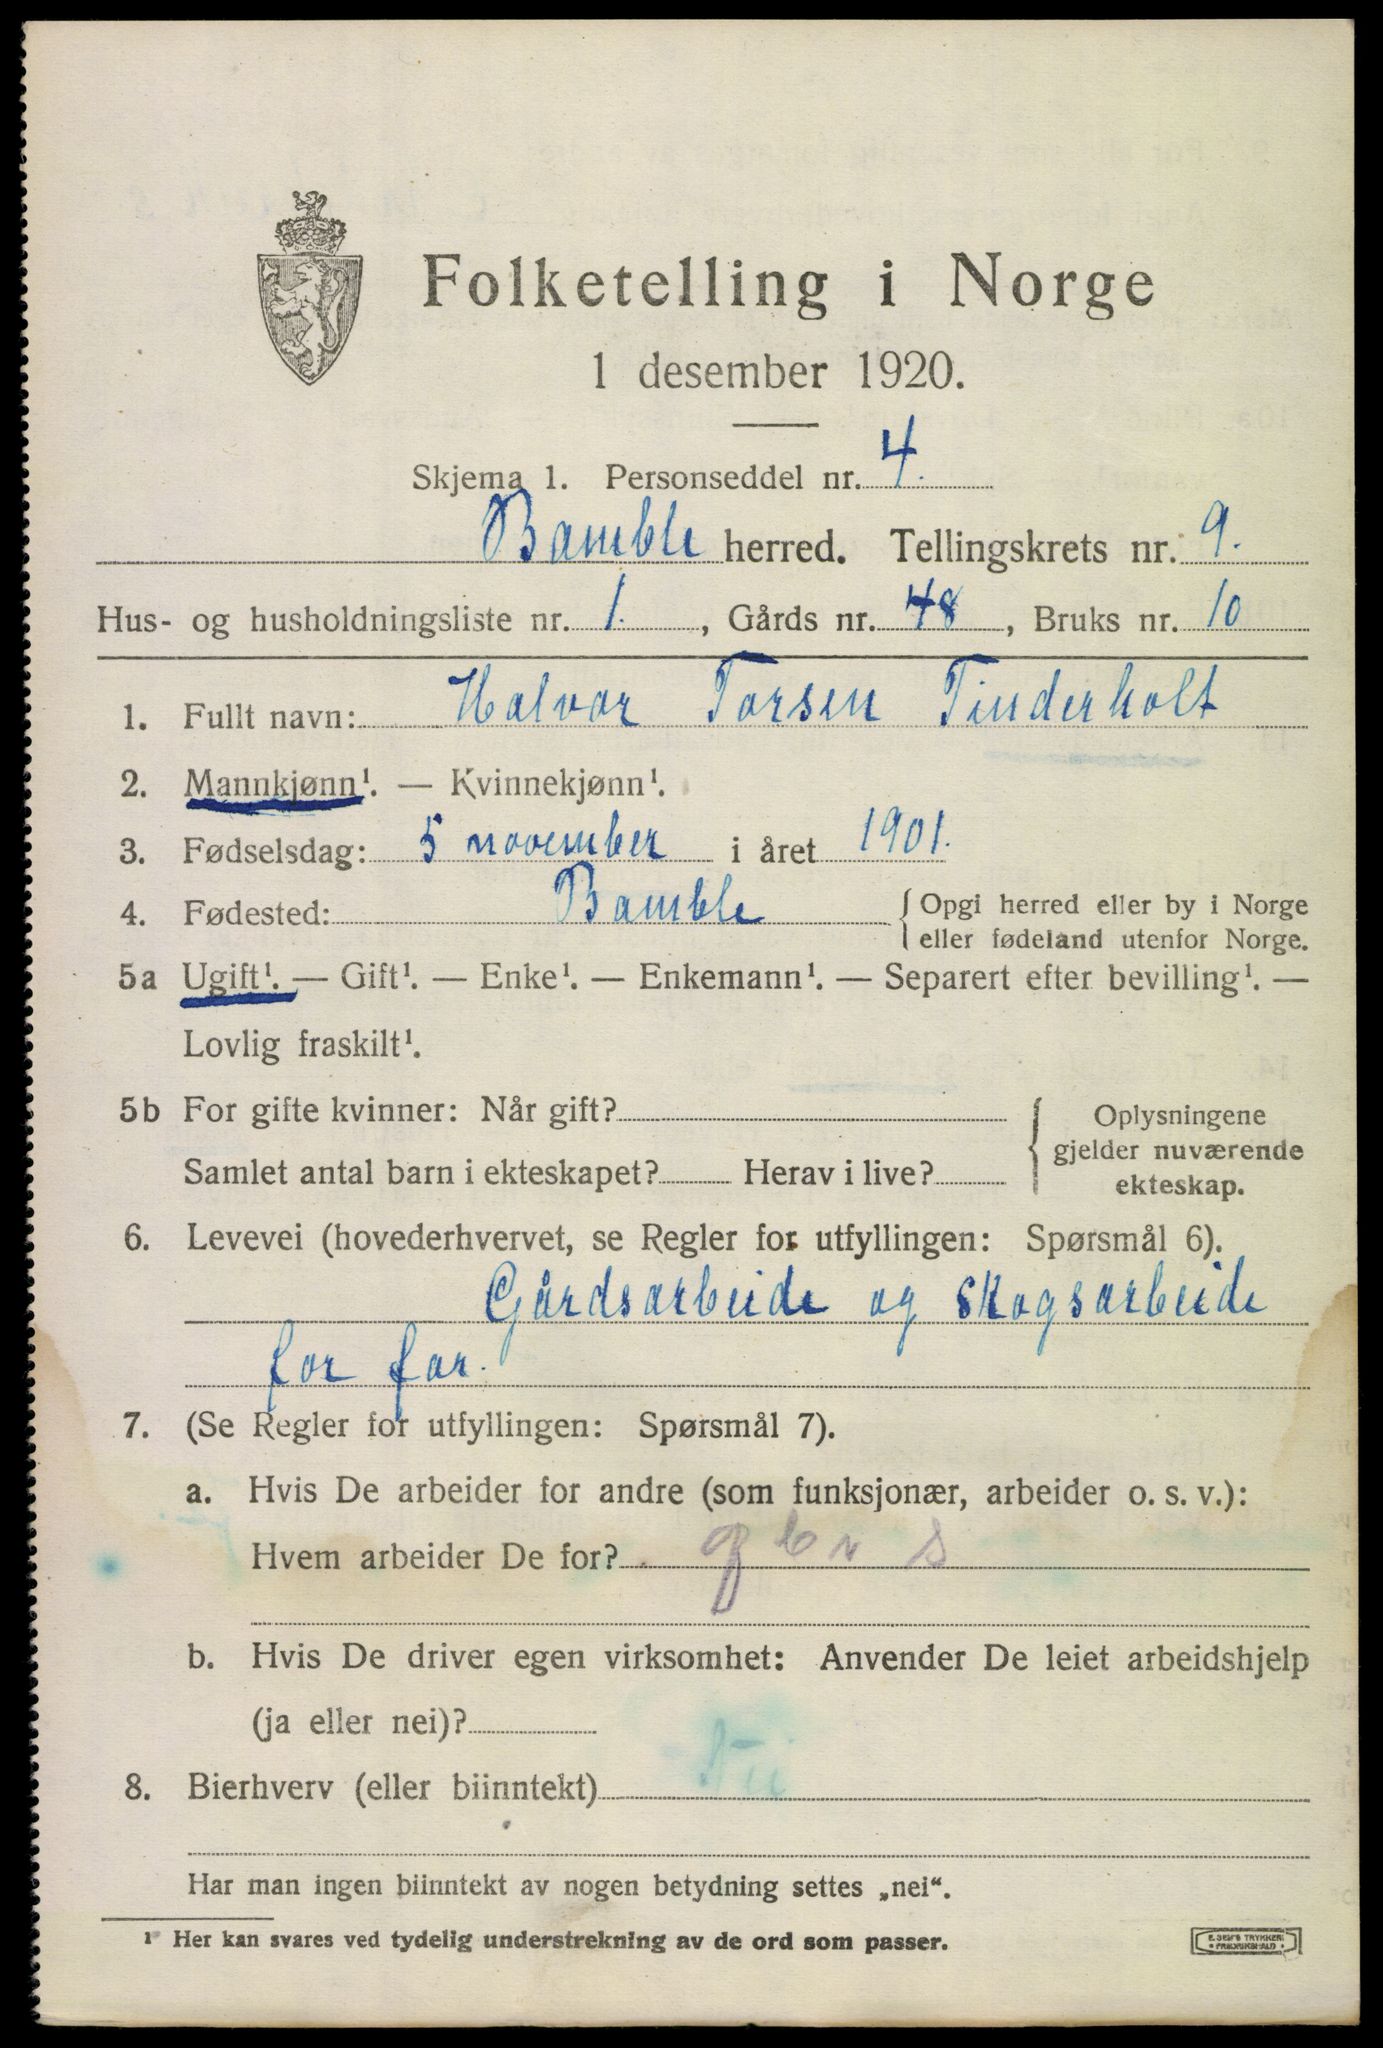 Folketelling i Norge
1 desember 1920.
Skjema 1. Personseddel nr. 4.
Bamble herred. Tellingskrets nr. 9.
Hus- og husholdningsliste nr. 1. , Gårds nr. 48 , Bruks nr. 10
1. Fullt navn: Halvor Torsen Tinderholt
2. Mannkjønn¹. — Kvinnekjønn¹.
3. Fødselsdag: 5 november i året 1901.
4. Fødested: Bamble { Opgi herred eller by i Norge
eller fødeland utenfor Norge.
5a Ugift¹. — Gift¹. — Enke¹. — Enkemann¹. — Separert efter bevilling¹. —
Lovlig fraskilt¹.
5b For gifte kvinner: Når gift?
Samlet antal barn i ekteskapet? Herav i live?
{ Oplysningene
gjelder nuværende
ekteskap.
6. Levevei (hovederhvervet, se Regler for utfyllingen: Spørsmål 6).
Gårdsarbeide og skogsarbeide
for far.
7. (Se Regler for utfyllingen: Spørsmål 7).
a. Hvis De arbeider for andre (som funksjonær, arbeider o. s. v.):
Hvem arbeider De for?
b. Hvis De driver egen virksomhet: Anvender De leiet arbeidshjelp
(ja eller nei)?
8. Bierhverv (eller biinntekt)
Har man ingen biinntekt av nogen betydning settes „nei“.
¹ Her kan svares ved tydelig understrekning av de ord som passer.
E. SEM'S TRYKKERI
FREDRIKSHALD